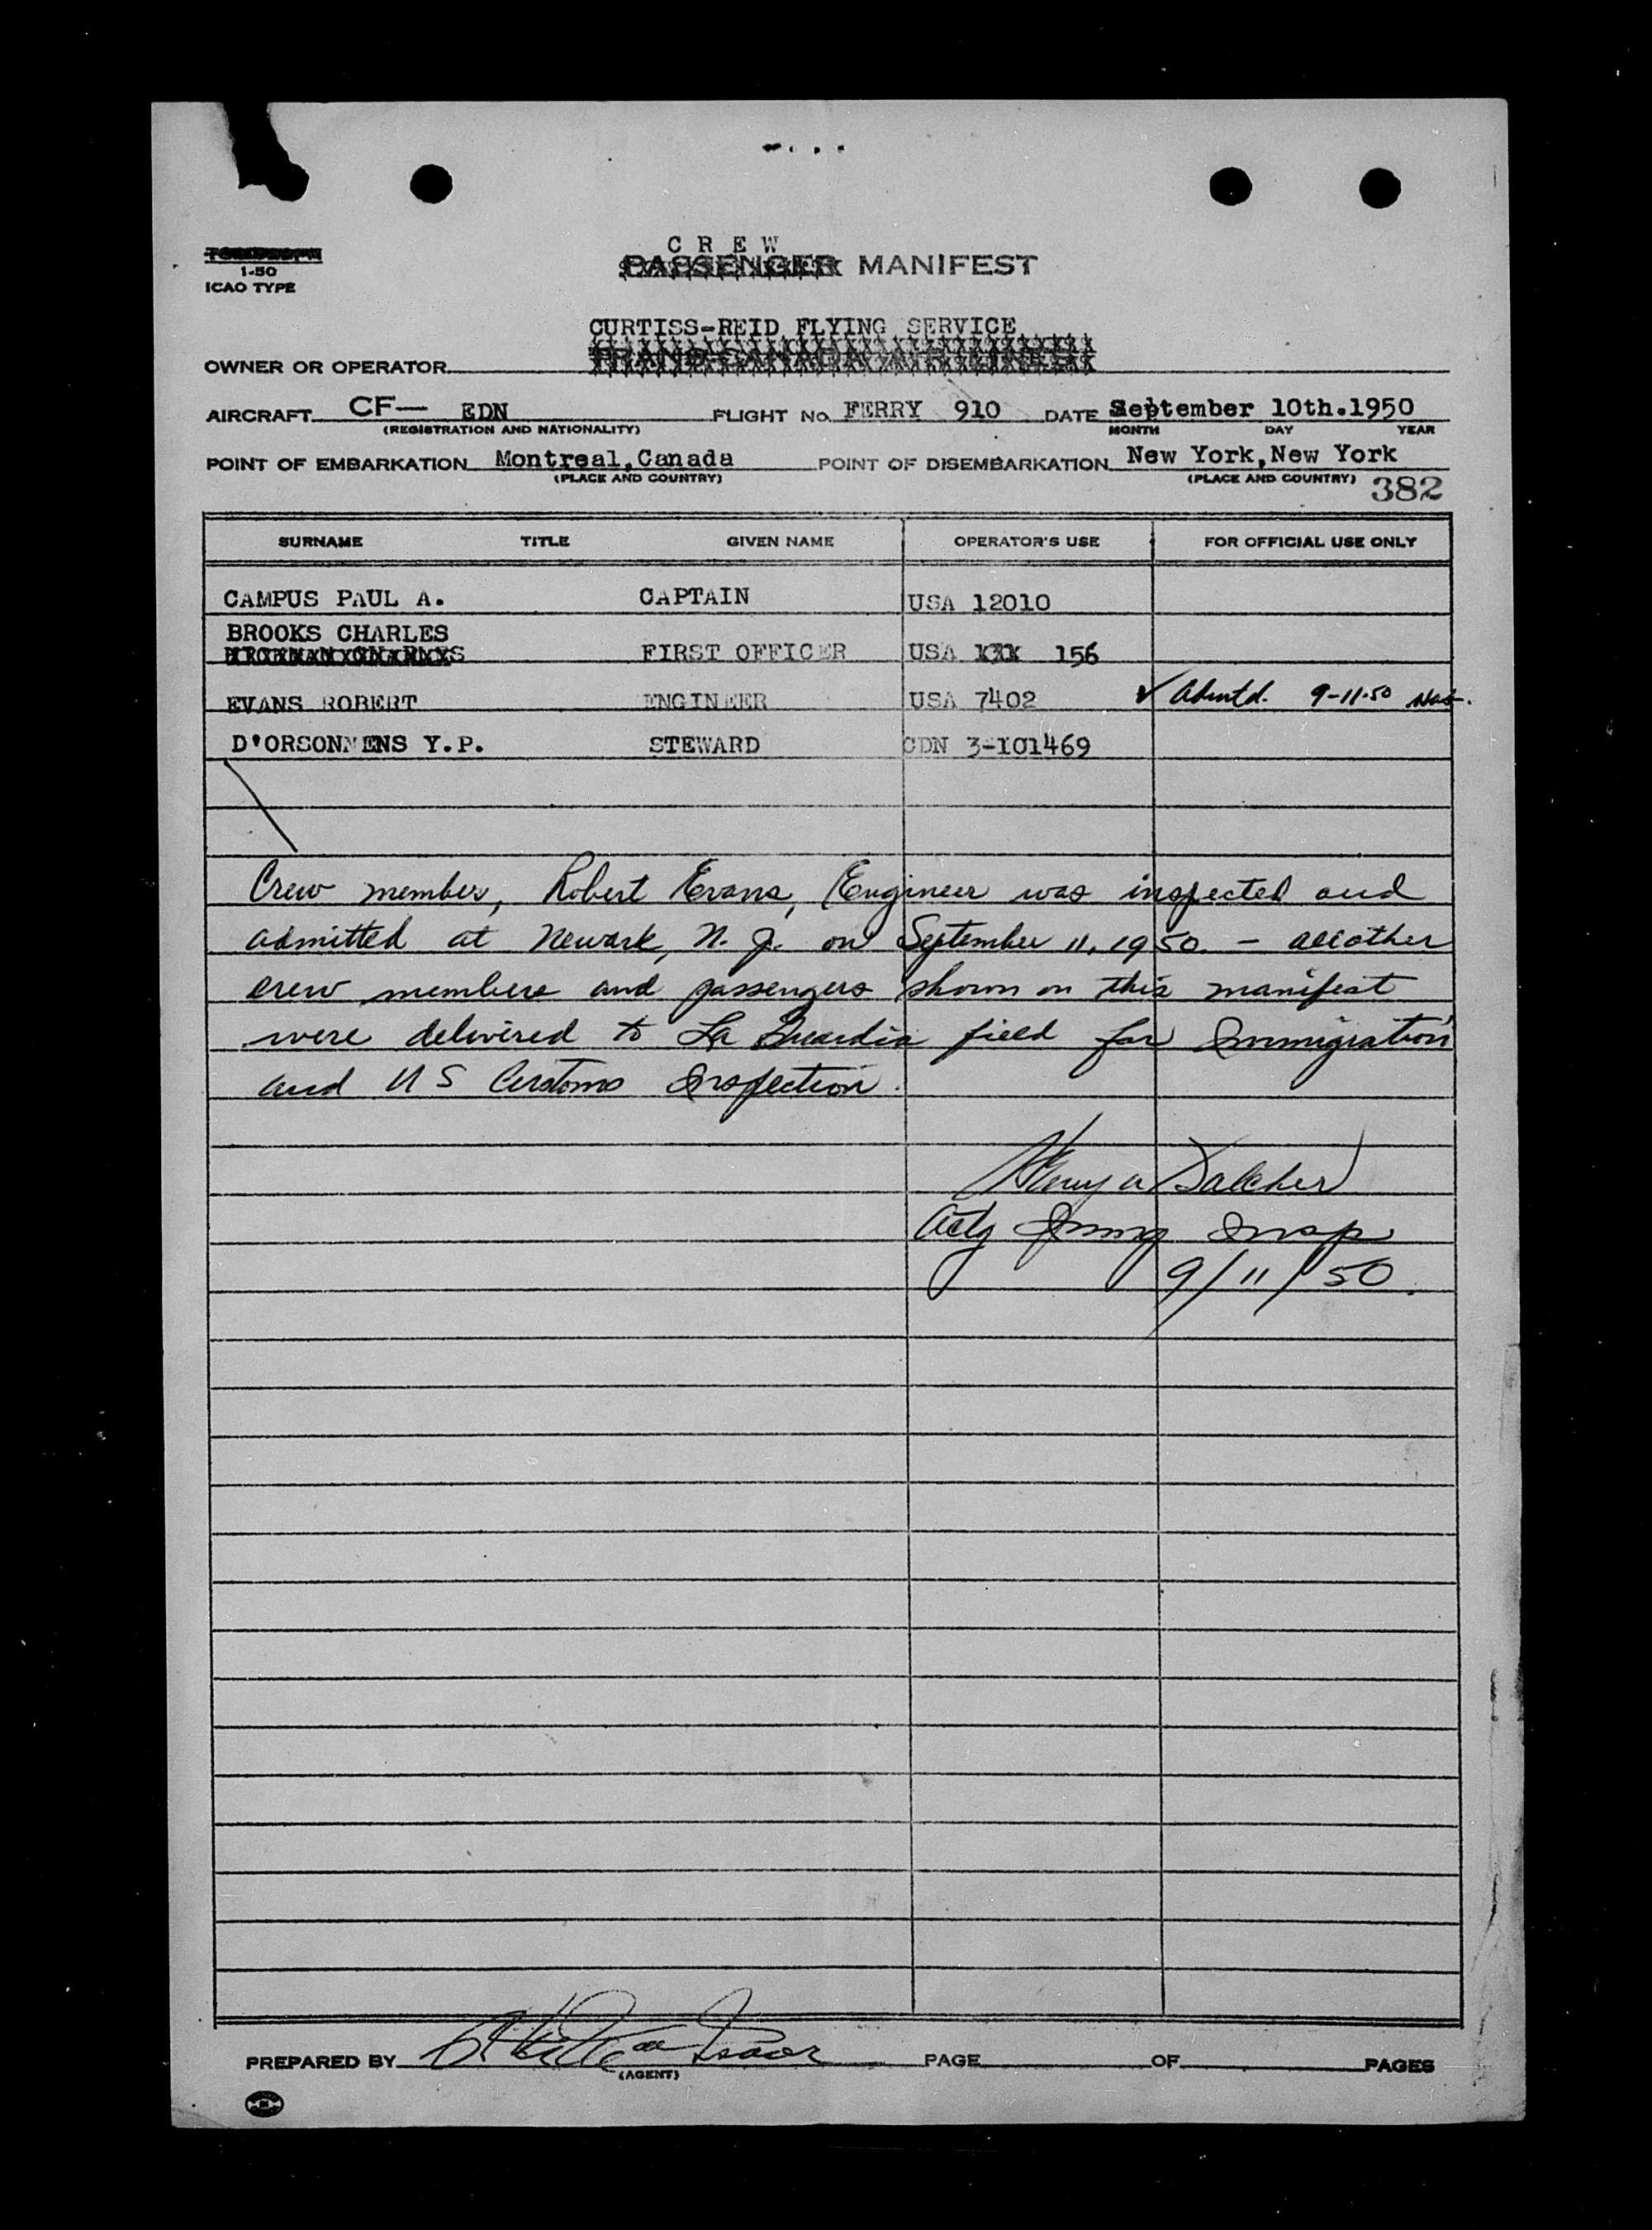 C R E W
PASSENGER MANIFEST
1-50
ICAO TYPE
CURTISS-REID FLYING SERVICE
TRANS-CANADA AIR LINES
OWNER OR OPERATOR
AIRCRAFT CF— EDN FLIGHT No. FERRY 910 DATE September 10th.1950
(REGISTRATION AND NATIONALITY) MONTH DAY YEAR
POINT OF EMBARKATION Montreal, Canada POINT OF DISEMBARKATION New York, New York
(PLACE AND COUNTRY) (PLACE AND COUNTRY) 382
SURNAME TITLE GIVEN NAME OPERATOR'S USE FOR OFFICIAL USE ONLY
CAMPUS PAUL A. CAPTAIN USA 12010
BROOKS CHARLES
FIRST OFFICER USA XXX 156
EVANS ROBERT ENGINEER USA 7402 ✓ Admtd. 9-11-50
D'ORSONNENS Y.P. STEWARD CDN 3-101469
Crew member, Robert Evans, Engineer was inspected and
admitted at Newark, N. J. on September 11, 1950. – all other
crew members and passengers shown on this manifest
were delivered to La Guardia field for Immigration
and U S Customs Inspection.
Henry A
Actg Immg Insp
9/11/50.
PREPARED BY PAGE OF PAGES
(AGENT)